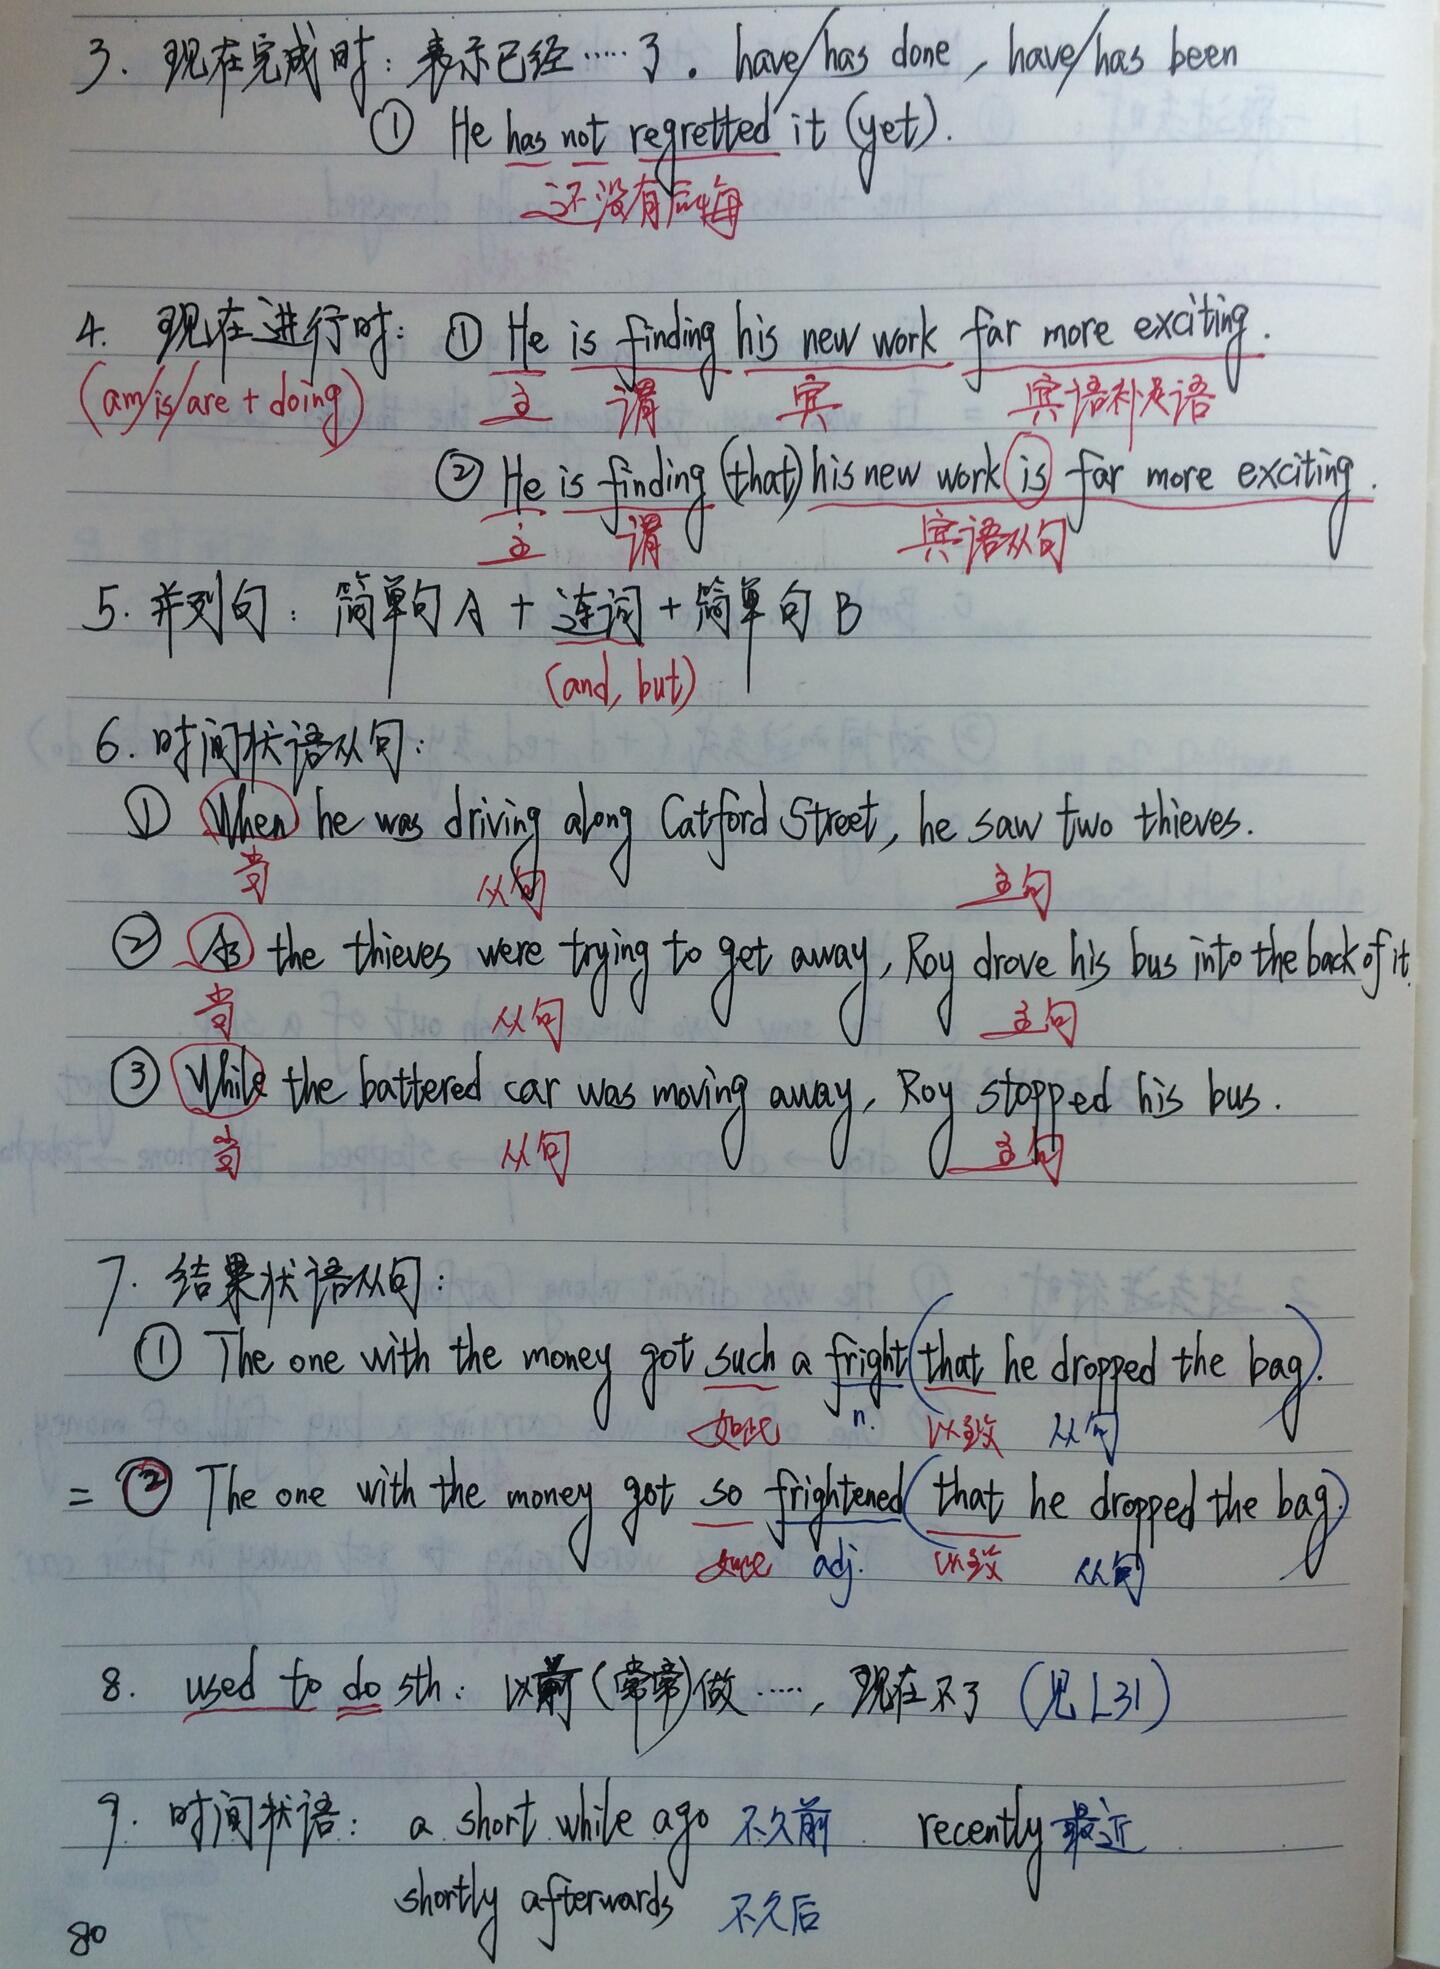 3. 现在完成时：表示已经……了. have/has done, have/has been
① He has not regretted it (yet).
还没有后悔
4. 现在进行时: ① He is finding his new work far more exciting.
(am/is/are + doing) 主 谓 宾 宾语补足语
② He is finding (that) his new work is far more exciting.
主 谓 宾语从句
5. 并列句: 简单句A + 连词 + 简单句B
(and, but)
6. 时间状语从句:
① When he was driving along Catford Street, he saw two thieves.
当 从句 主句
② As the thieves were trying to get away, Roy drove his bus into the back of it.
当 从句 主句
③ While the battered car was moving away, Roy stopped his bus.
当 从句 主句
7. 结果状语从句:
① The one with the money got such a fright (that he dropped the bag).
如此 n. 以致 从句
= ② The one with the money got so frightened (that he dropped the bag.)
如此 adj. 以致 从句
8. used to do sth: 以前(常常)做……, 现在不了 (见L31)
9. 时间状语: a short while ago 不久前 recently 最近
shortly afterwards 不久后
80